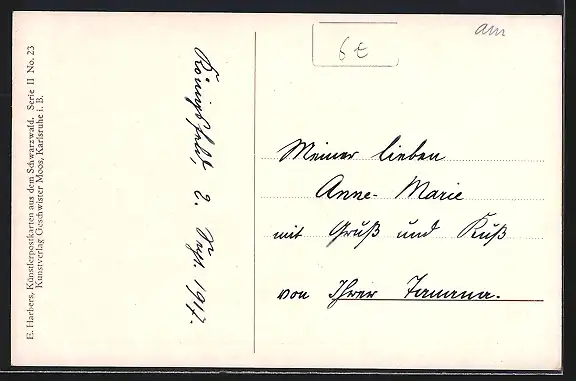 E. Harbers, Künstlerpostkarten aus dem Schwarzwald. Serie II No. 23
Kunstverlag Geschwister Moos, Karlsruhe i. B.
Königsfeld, 2. Sept. 1917.
6 £
am
Meiner lieben
Anne-Marie
mit Gruß und Kuß
von Ihrer Tanana.